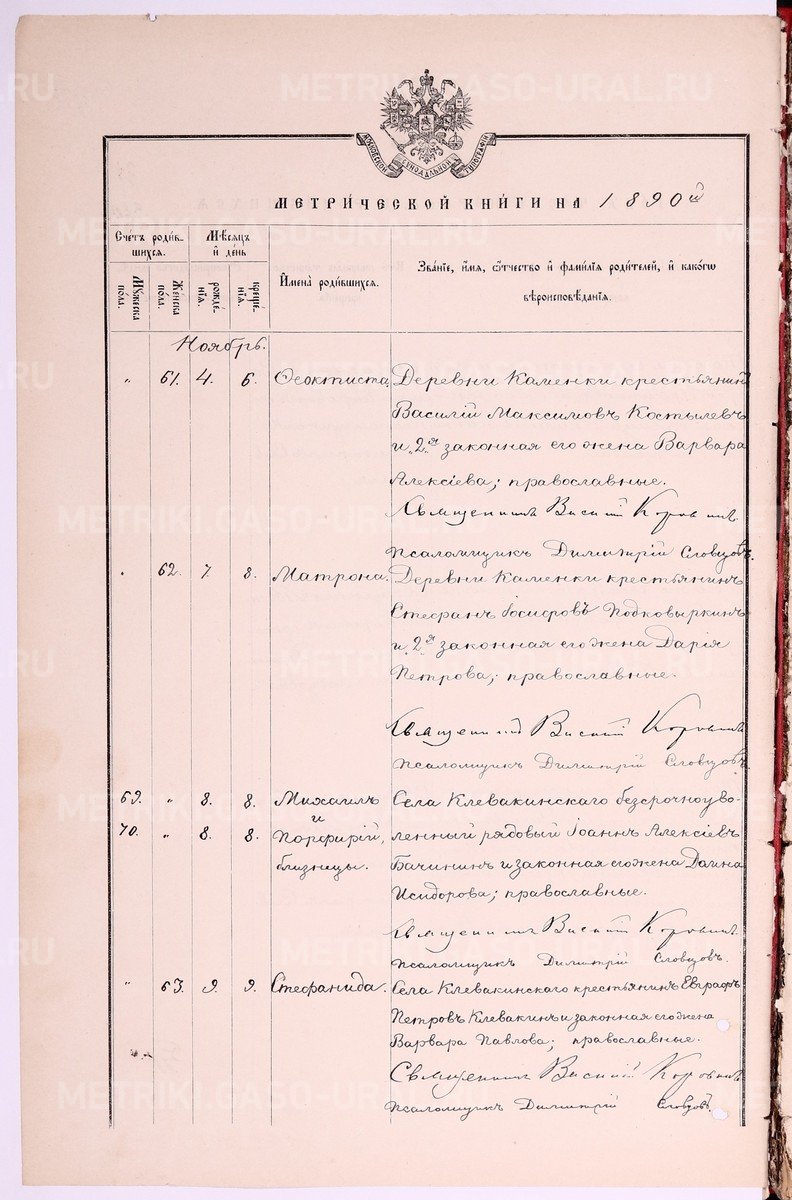 МОСКОВСКОЙ СѴНОДАЛЬНОЙ ТИПОГРАФІИ
МЕТРИ́ЧЕСКОЙ КНИ́ГИ НА 1890й
Сче́тъ роди́в-
шихся.
Мѣ́сяцъ
и҆ де́нь
Му́жеска по́ла.
Же́нска по́ла.
рожде́-
нія.
креще́-
нія.
И҆мена̀ роди́вшихся.
Зва́ніе, и҆́мя, ѻ҆́тчество и҆ фами́лія роди́телей, и҆ како́гѡ
вѣроисповѣ́данія.
Ноябрь.
„ 61. 4. 6. Ѳеоктиста, Деревни Каменки крестьянинъ
Василій Максимовъ Костылевъ
и „2я“ законная его жена Варвара
Алексіева; православные.
Священникъ Василій Коровинъ.
Псаломщикъ Димитрій Словцовъ.
„ 62. 7. 8. Матрона. Деревни Каменки крестьянинъ
Стефанъ Іосифовъ Подковыркинъ
и „2я“ законная его жена Дарія
Петрова; православные.
Священникъ Василій Коровинъ
Псаломщикъ Димитрій Словцовъ
69. „ 8. 8. Михаилъ Села Клевакинскаго безсрочноуво-
и
70. „ 8. 8. Порфирій, ленный рядовый Іоаннъ Алексіевъ
близнецы. Бачининъ и законная его жена Домна
Исидорова; православные.
Священникъ Василій Коровинъ.
Псаломщикъ Димитрій Словцовъ.
„ 63. 9. 9. Стефанида. Села Клевакинскаго крестьянинъ Евграфъ
Петровъ Клевакинъ и законная его жена
Варвара Павлова; православные.
Священникъ Василій Коровинъ
Псаломщикъ Димитрій Словцовъ.
METRIKI.GASO-URAL.RU